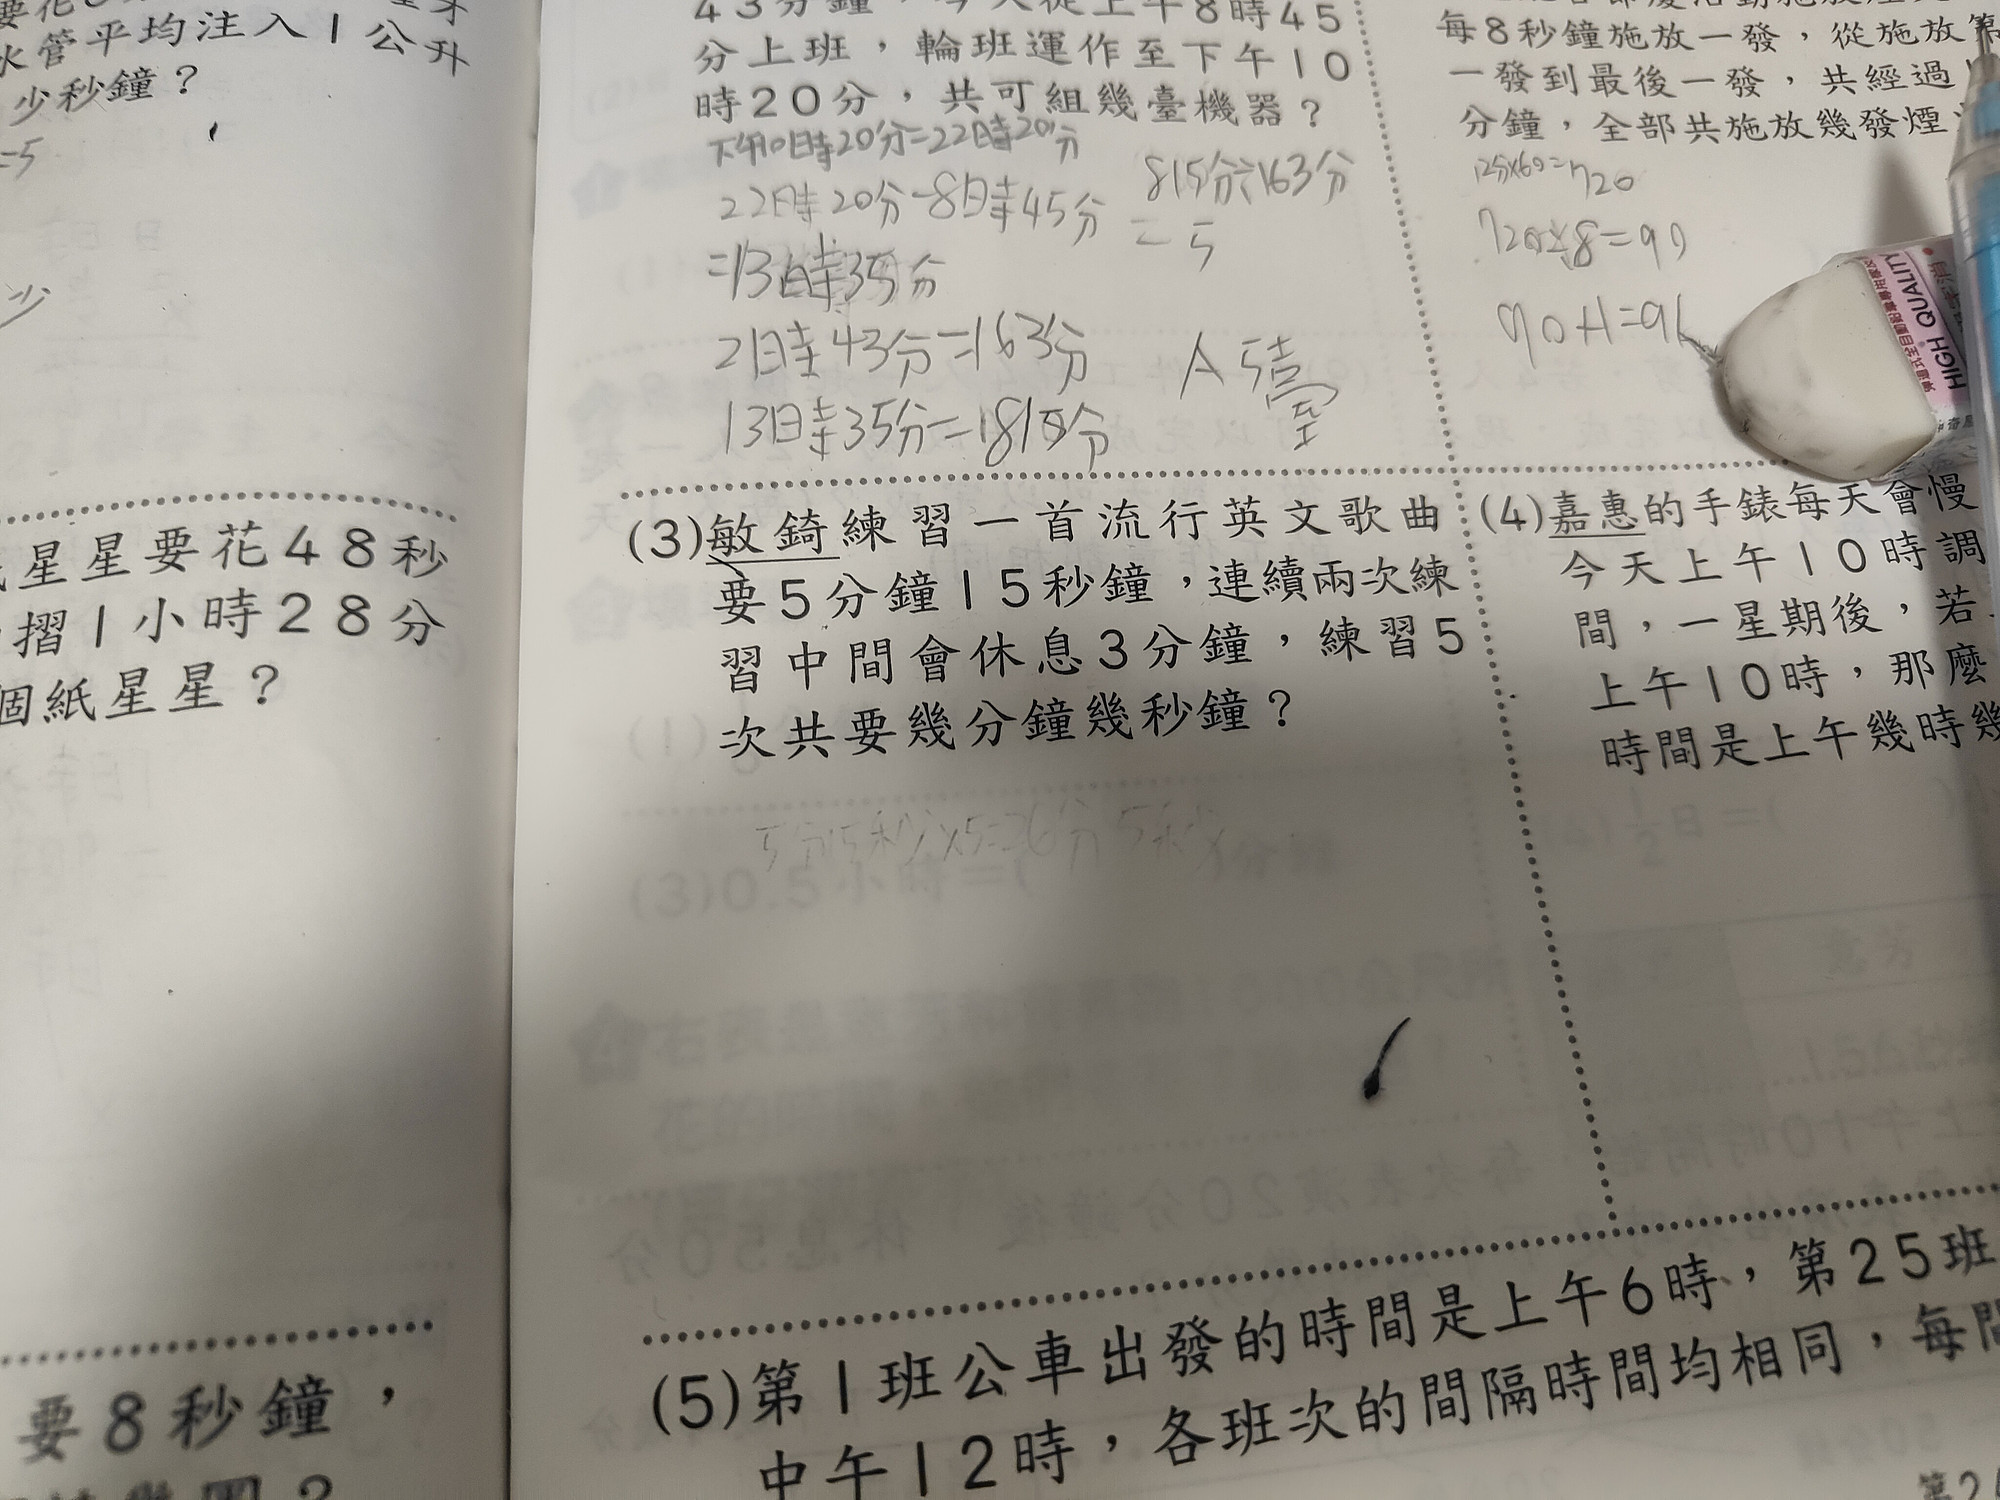 水管平均注入1公升
少秒鐘？
=5
星星要花48秒
摺1小時28分
個紙星星？
要8秒鐘，
分上班，輪班運作至下午10
時20分，共可組幾臺機器？
下午10時20分=22時20分
22時20分-8時45分
=13時35分
2時43分=163分
13時35分=815分
815分÷163分
=5
A 5臺
每8秒鐘施放一發，從施放第
一發到最後一發，共經過
分鐘，全部共施放幾發煙
12分×60=720
720÷8=90
90+1=91
HIGH QUALITY
(3)敏錡練習一首流行英文歌曲
要5分鐘15秒鐘，連續兩次練
習中間會休息3分鐘，練習5
次共要幾分鐘幾秒鐘？
5分15秒×5=26分5秒
(4)嘉惠的手錶每天會慢
今天上午10時調
間，一星期後，若
上午10時，那麼
時間是上午幾時幾
(5)第1班公車出發的時間是上午6時，第25班
中午12時，各班次的間隔時間均相同，每間